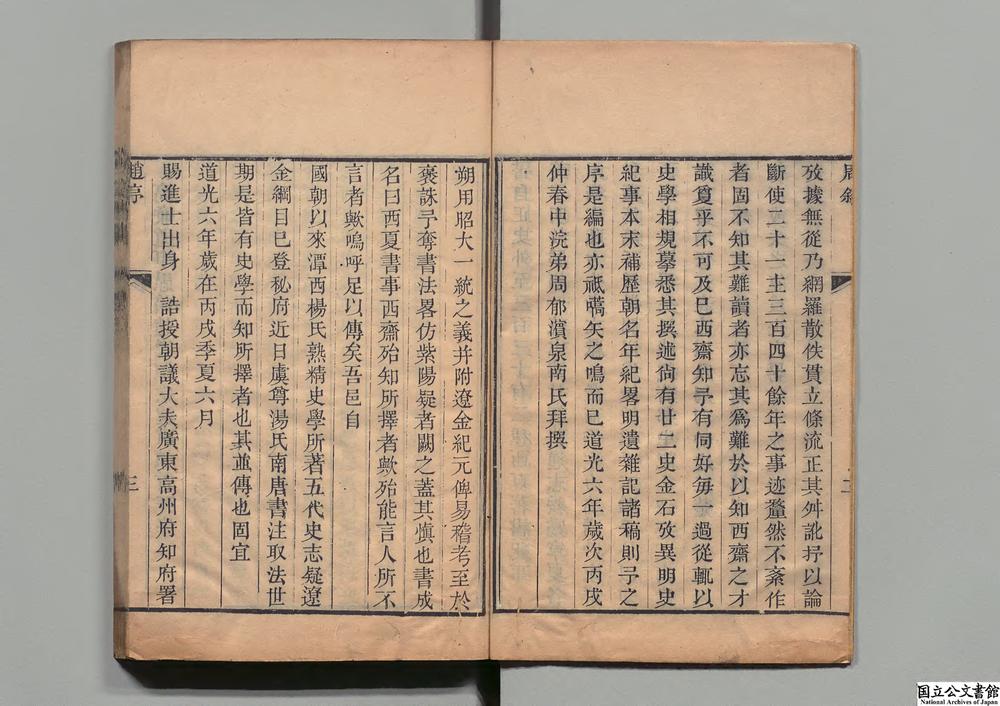 周敘
攷據無從乃網羅散佚貫立條流正其舛訛抒以論
斷使二十一主三百四十餘年之事迹釐然不紊作
者固不知其難讀者亦忘其爲難於以知西齋之才
識敻乎不可及已西齋知予有同好每一過從輒以
史學相規摹悉其撰述尙有廿二史金石攷異明史
紀事本末補歷朝名年紀畧明遺雜記諸稿則予之
序是編也亦祗嚆矢之鳴而已道光六年歲次丙戌
仲春中浣弟周郁濱泉南氏拜撰
二
朔用昭大一統之義幷附遼金紀元俾易稽考至於
襃誅予奪書法畧仿紫陽疑者闕之蓋其愼也書成
名曰西夏書事西齋殆知所擇者歟殆能言人所不
言者歟嗚呼足以傳矣吾邑自
國朝以來潭西楊氏熟精史學所著五代史志疑遼
金綱目已登秘府近日虞尊湯氏南唐書注取法世
期是皆有史學而知所擇者也其並傳也固宜
道光六年歲在丙戌季夏六月
賜進士出身 誥授朝議大夫廣東高州府知府署
趙序
三
国立公文書館
National Archives of Japan